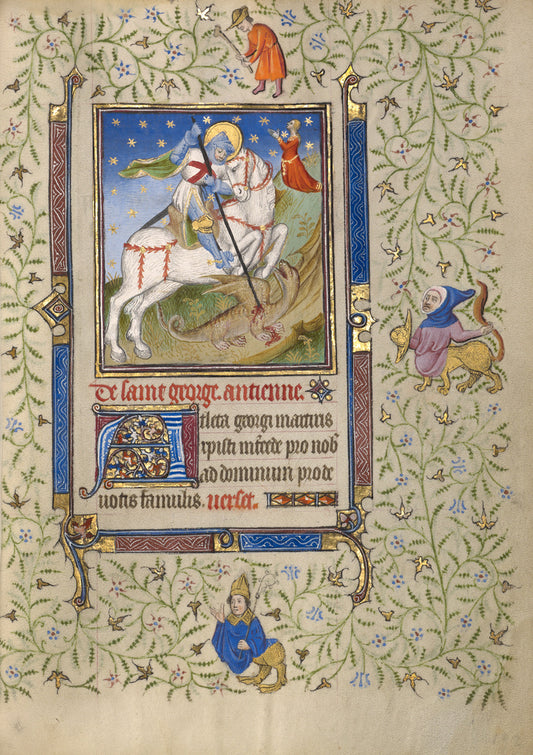 De saint george. antienne.
Atleta georgi martiris
xpisti mercede pro nob
ad dominum prode
uotis famulis. verset.